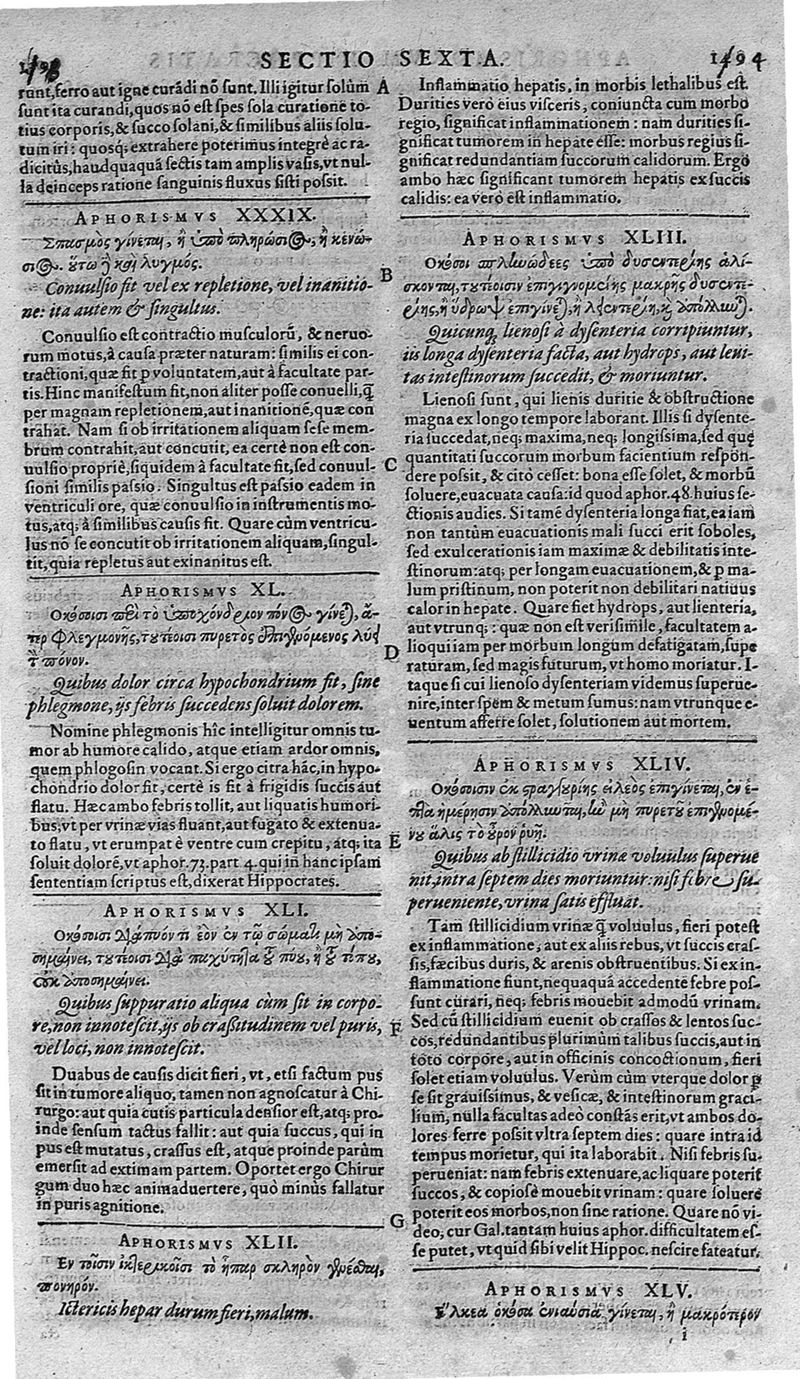 1493
SECTIO SEXTA.
1494
runt, ferro aut igne curãdi nõ sunt. Illi igitur solùm
sunt ita curandi, quos nõ est spes sola curatione to-
tius corporis, & succo solani, & similibus aliis solu-
tum iri: quosq; extrahere poterimus integrè ac ra-
dicitùs, haudquaquã sectis tam amplis vasis, vt nul-
la deinceps ratione sanguinis fluxus sisti possit.
APHORISMVS XXXIX.
Σπασμὸς γίνεται, ἢ ὑπὸ πληρώσιος, ἢ κενώ-
σιος. οὕτω ἢ καὶ λυγμός.
Conuulsio fit vel ex repletione, vel inanitio-
ne: ita autem & singultus.
Conuulsio est contractio musculorũ, & neruo-
rum motus, à causa præter naturam: similis ei con-
tractioni, quæ fit p voluntatem, aut à facultate par-
tis. Hinc manifestum fit, non aliter posse conuelli, q̃
per magnam repletionem, aut inanitionẽ, quæ con
trahat. Nam si ob irritationem aliquam sese mem-
brum contrahit, aut concutit, ea certè non est con-
uulsio propriè, siquidem à facultate fit, sed conuul-
sioni similis passio. Singultus est passio eadem in
ventriculi ore, quæ conuulsio in instrumentis mo-
tus, atq; à similibus causis fit. Quare cùm ventricu-
lus nõ se concutit ob irritationem aliquam, singul-
tit, quia repletus aut exinanitus est.
APHORISMVS XL.
Οκόσοισι περὶ τὸ ὑποχόνδριον πόνος γίνεται, ἄ-
τερ φλεγμονῆς, τουτέοισι πυρετὸς ἐπιγενόμενος λύει
τὸν πόνον.
Quibus dolor circa hypochondrium fit, sine
phlegmone, ijs febris succedens soluit dolorem.
Nomine phlegmonis hîc intelligitur omnis tu-
mor ab humore calido, atque etiam ardor omnis,
quem phlogosin vocant. Si ergo citra hãc, in hypo-
chondrio dolor fit, certè is fit à frigidis succis aut
flatu. Hæc ambo febris tollit, aut liquatis humori-
bus, vt per vrinæ vias fluant, aut fugato & extenua-
to flatu, vt erumpat è ventre cum crepitu, atq; ita
soluit dolorẽ, vt aphor. 73. part 4. qui in hanc ipsam
sententiam scriptus est, dixerat Hippocrates.
APHORISMVS XLI.
Οκόσοισι διάπυόν τι ἐὸν ἐν τῷ σώματι μὴ ἀπο-
σημαίνει, τουτέοισι διὰ παχύτητα τοῦ πύου, ἢ τοῦ τόπου,
οὐκ ἀποσημαίνει.
Quibus suppuratio aliqua cùm sit in corpo-
re, non innotescit, ijs ob crassitudinem vel puris,
vel loci, non innotescit.
Duabus de causis dicit fieri, vt, etsi factum pus
sit in tumore aliquo, tamen non agnoscatur à Chi-
rurgo: aut quia cutis particula densior est, atq; pro-
inde sensum tactus fallit: aut quia succus, qui in
pus est mutatus, crassus est, atque proinde parùm
emersit ad extimam partem. Oportet ergo Chirur
gum duo hæc animaduertere, quò minùs fallatur
in puris agnitione.
APHORISMVS XLII.
Εν τοῖσιν ἰκτερικοῖσι τὸ ἧπαρ σκληρὸν γενέσθαι,
πονηρόν.
Ictericis hepar durum fieri, malum.
A
B
C
D
E
F
G
Inflammatio hepatis, in morbis lethalibus est.
Durities verò eius visceris, coniuncta cum morbo
regio, significat inflammationem: nam durities si-
gnificat tumorem in hepate esse: morbus regius si-
gnificat redundantiam succorum calidorum. Ergo
ambo hæc significant tumorem hepatis ex succis
calidis: ea verò est inflammatio.
APHORISMVS XLIII.
Οκόσοι σπληνώδεες ὑπὸ δυσεντερίης ἁλί-
σκονται, τουτέοισιν ἐπιγινομένης μακρῆς δυσεντε-
ρίης, ἢ ὕδρωψ ἐπιγίνεται, ἢ λειεντερίη, καὶ ἀπόλλυνται.
Quicunq; lienosi à dysenteria corripiuntur,
iis longa dysenteria facta, aut hydrops, aut leui-
tas intestinorum succedit, & moriuntur.
Lienosi sunt, qui lienis duritie & obstructione
magna ex longo tempore laborant. Illis si dysente-
ria succedat, neq; maxima, neq; longissima, sed quę
quantitati succorum morbum facientium respõn-
dere possit, & citò cesset: bona esse solet, & morbũ
soluere, euacuata causa: id quod aphor. 48. huius se-
ctionis audies. Si tamẽ dysenteria longa fiat, ea iam
non tantùm euacuationis mali succi erit soboles,
sed exulcerationis iam maximæ & debilitatis inte-
stinorum: atq; per longam euacuationem, & p ma-
lum pristinum, non poterit non debilitari natiuus
calor in hepate. Quare fiet hydrops, aut lienteria,
aut vtrunq; : quæ non est verisimile, facultatem a-
lioqui iam per morbum longum defatigatam, supe
raturam, sed magis futurum, vt homo moriatur. I-
taque si cui lienoso dysenteriam videmus superue-
nire, inter spem & metum sumus: nam vtrunque e-
uentum afferre solet, solutionem aut mortem.
APHORISMVS XLIV.
Οκόσοισιν ἐκ στραγγουρίης εἰλεὸς ἐπιγίνεται, ἐν ἑ-
πτὰ ἡμέρησιν ἀπόλλυνται, ἢν μὴ πυρετοῦ ἐπιγενομέ-
νου ἅλις τὸ οὖρον ῥυῇ.
Quibus ab stillicidio vrinæ voluulus superue
nit, intra septem dies moriuntur: nisi febre su-
perueniente, vrina satis effluat.
Tam stillicidium vrinæ q̃ voluulus, fieri potest
ex inflammatione, aut ex aliis rebus, vt succis cras-
sis, fæcibus duris, & arenis obstruentibus. Si ex in-
flammatione fiunt, nequaquã accedente febre pos-
sunt curari, neq; febris mouebit admodũ vrinam.
Sed cũ stillicidium euenit ob crassos & lentos suc-
cos, redundantibus plurimùm talibus succis, aut in
toto corpore, aut in officinis concoctionum, fieri
solet etiam voluulus. Verùm cùm vterque dolor p
se sit grauissimus, & vesicæ, & intestinorum graci-
lium, nulla facultas adeò constãs erit, vt ambos do-
lores ferre possit vltra septem dies: quare intra id
tempus morietur, qui ita laborabit. Nisi febris su-
perueniat: nam febris extenuare, ac liquare poterit
succos, & copiosè mouebit vrinam: quare soluere
poterit eos morbos, non sine ratione. Quare nõ vi-
deo, cur Gal. tantam huius aphor. difficultatem es-
se putet, vt quid sibi velit Hippoc. nescire fateatur.
APHORISMVS XLV.
Ελκεα ὁκόσα ἐνιαύσια γίνεται, ἢ μακρότερον
i